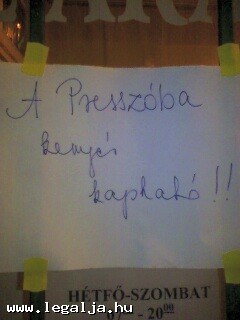 A Presszóba
kenyér
kapható!!
HÉTFŐ-SZOMBAT
- 20⁰⁰
www.legalja.hu